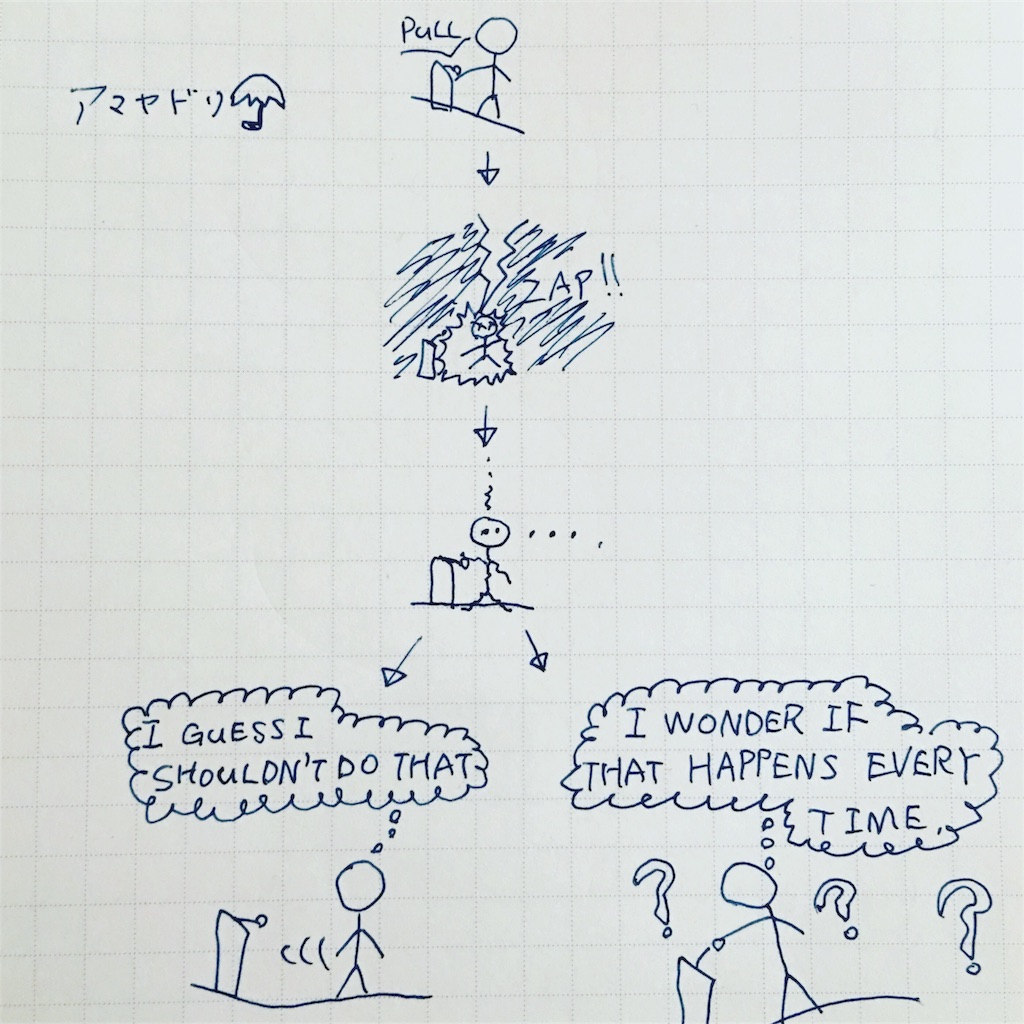 PULL
アマヤドリ
ZAP!!
....
I GUESS I
SHOULDN'T DO THAT
I WONDER IF
THAT HAPPENS EVERY
TIME.
? ? ?